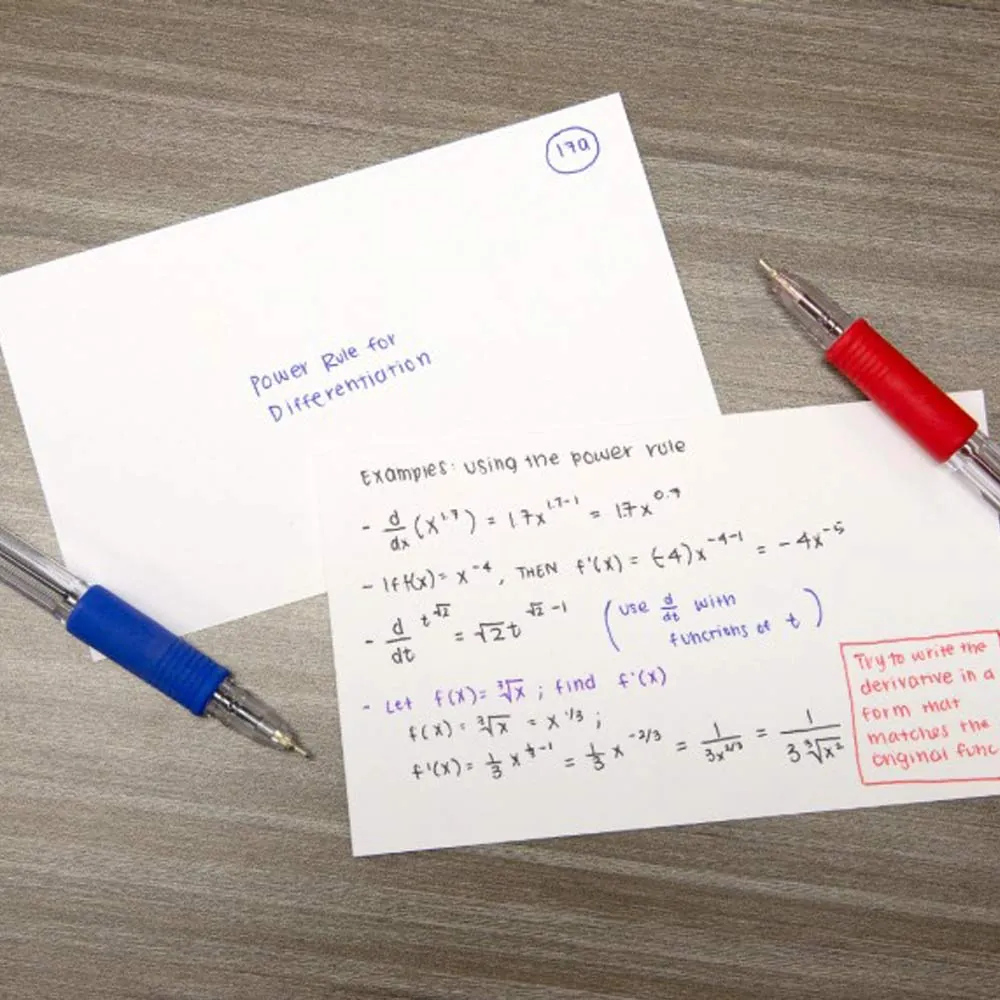 17a
Power Rule for
Differentiation
Examples: Using the power rule
- d/dx (x^1.7) = 1.7x^1.7-1 = 1.7x^0.7
- If f(x) = x^-4, THEN f'(x) = (-4)x^-4-1 = -4x^-5
- d/dt t^√2 = √2 t^√2-1 (use d/dt with
functions of t)
- Let f(x) = ∛x ; find f'(x)
f(x) = ∛x = x^1/3 ;
f'(x) = 1/3 x^1/3-1 = 1/3 x^-2/3 = 1/3x^2/3 = 1/3∛x²
Try to write the
derivative in a
form that
matches the
original func